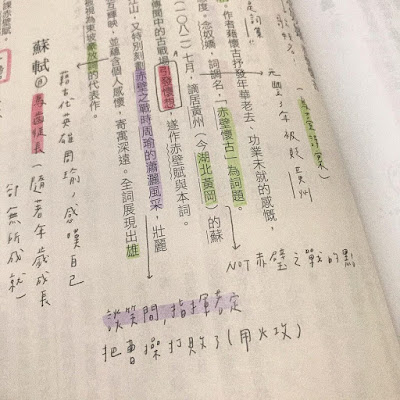 作者藉懷古抒發年華老去、功業未就的感慨，
念奴嬌，詞調名，「赤壁懷古」為詞題。
七月，謫居黃州（今湖北黃岡）的蘇
傳聞中的古戰場，引發懷想，遂作赤壁賦與本詞。
江山，又特別刻劃赤壁之戰時周瑜的瀟灑風采，壯麗
輝映，並蘊含個人感懷，寄寓深遠。全詞展現出雄
被視為東坡豪放詞的代表作。
藉古代英雄周瑜，感嘆自己
蘇軾
馬齒徒長（隨著年歲成長
卻無所成就）
NOT赤壁之戰的點
談笑間，指揮若定
把曹操打敗了（用火攻）